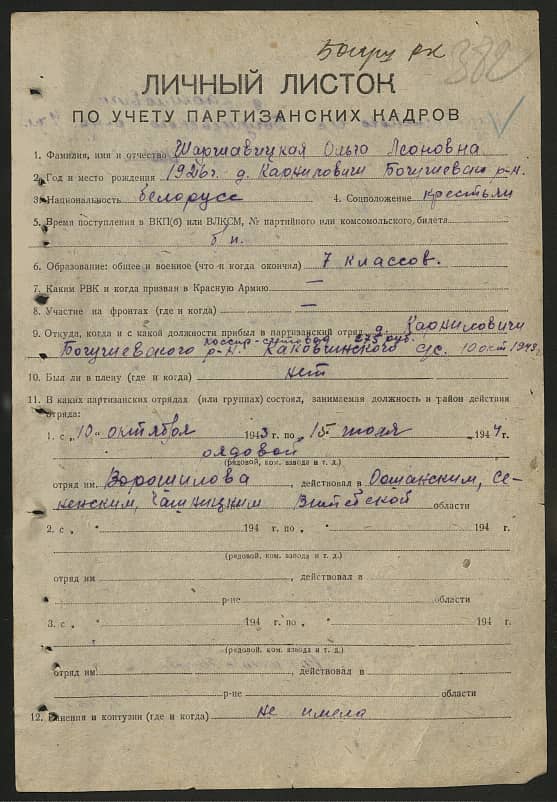 382
ЛИЧНЫЙ ЛИСТОК
ПО УЧЕТУ ПАРТИЗАНСКИХ КАДРОВ
1. Фамилия, имя и отчество Ольга Леоновна
2. Год и место рождения 1926 г. д. Карниловичи Богушевский р-н.
3. Национальность белорусс 4. Соцположение крестьян
5. Время поступления в ВКП(б) или ВЛКСМ, № партийного или комсомольского билета
б п.
6. Образование: общее и военное (что и когда окончил) 7 классов.
7. Каким РВК и когда призван в Красную Армию —
8. Участие на фронтах (где и когда) —
9. Откуда, когда и с какой должности прибыл в партизанский отряд д. Карниловичи
кассир-счетовод 275 руб.
Богушевского р-н. с/с. 10 окт 1943 г
10. Был ли в плену (где и когда) нет
11. В каких партизанских отрядах (или группах) состоял, занимаемая должность и район действия
отряда:
1. с „10" октября 1943 г. по „15" июля 1944 г.
рядовой
(рядовой, ком. взвода и т. д.)
отряд им. Ворошилова, действовал в Оршанским, Се-
ненским, Чашницким Витебской области
2. с „ " 194 г. по „ " 194 г.
(рядовой, ком. взвода и т. д.)
отряд им , действовал в
р-не области
3. с „ " 194 г. по „ " 194 г.
(рядовой, ком. взвода и т. д.)
отряд им. , действовал в
р-не области
12. Ранения и контузии (где и когда) не имела